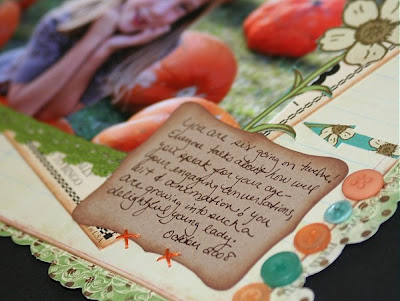 You are six going on twelve.
Everyone talks about how well
you speak for your age—
your engaging conversations,
wit & animation. You
are growing into such a
delightful young lady.
October 2008